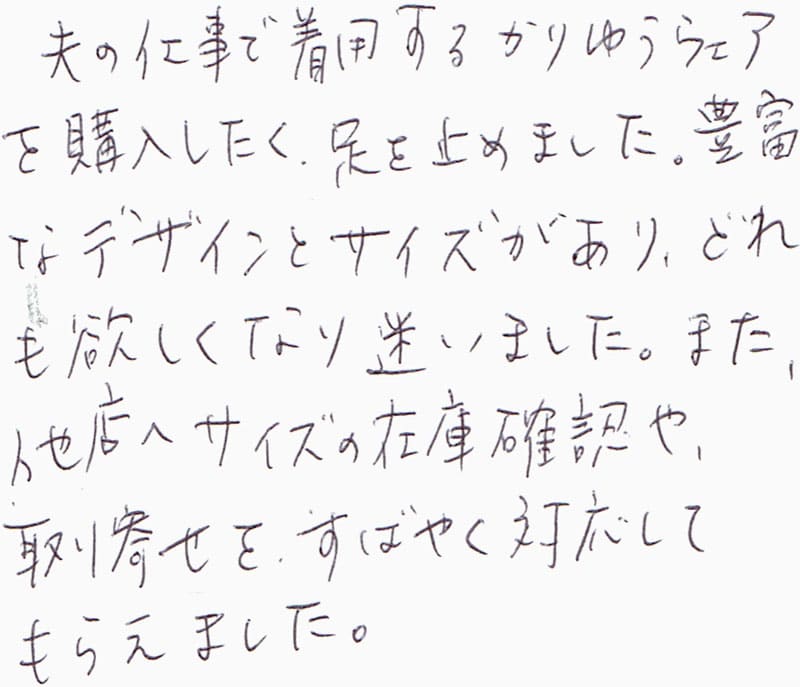 夫の仕事で着用するかりゆうウェア
を購入したく、足を止めました。豊富
なデザインとサイズがあり、どれ
も欲しくなり迷いました。また、
他店へサイズの在庫確認や、
取り寄せを、すばやく対応して
もらえました。